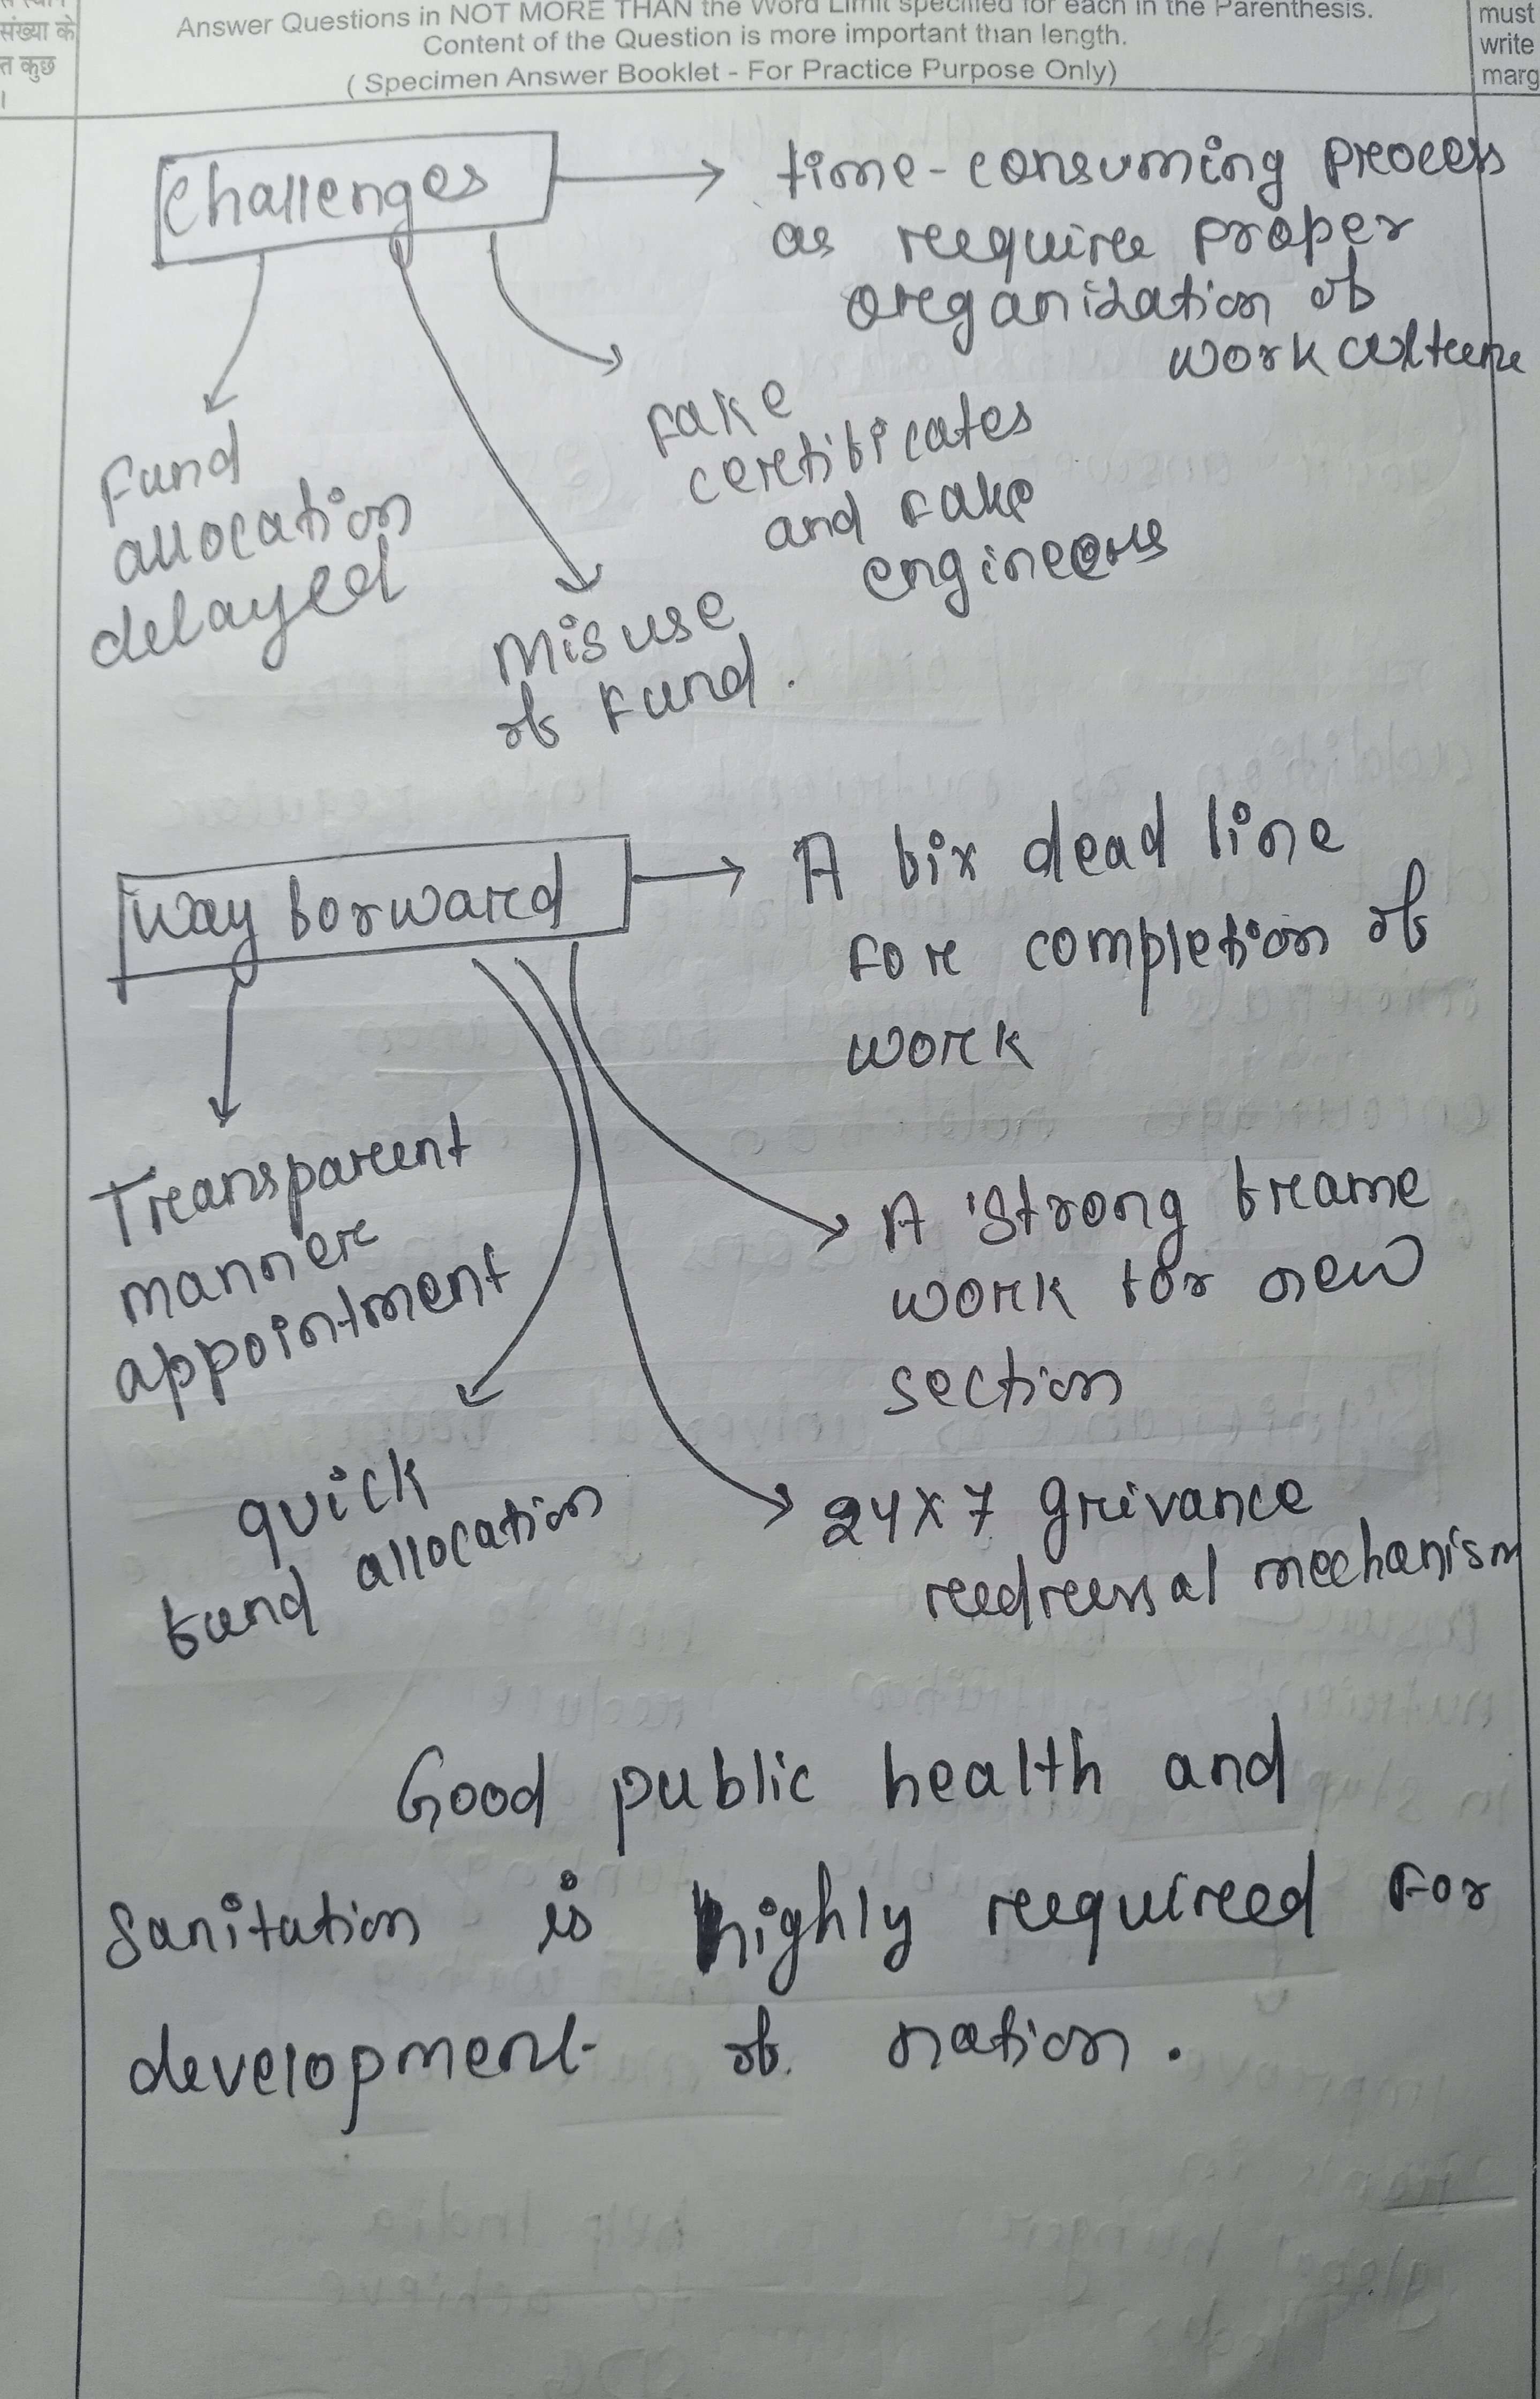 संख्या के
त कुछ
।
Answer Questions in NOT MORE THAN the Word Limit specified for each in the Parenthesis.
Content of the Question is more important than length.
( Specimen Answer Booklet - For Practice Purpose Only)
must
write
marg
Challenges
time-consuming process
as require proper
organization of
work culture
Fake
certificates
and fake
engineers
Fund
allocation
delayed
Misuse
of Fund.
Way forward
A fix dead line
For completion of
work
Transparent
manner
appointment
A strong frame
work for new
section
quick
fund allocation
24x7 grivance
redressal mechanism
Good public health and
Sanitation is highly required For
development of nation.